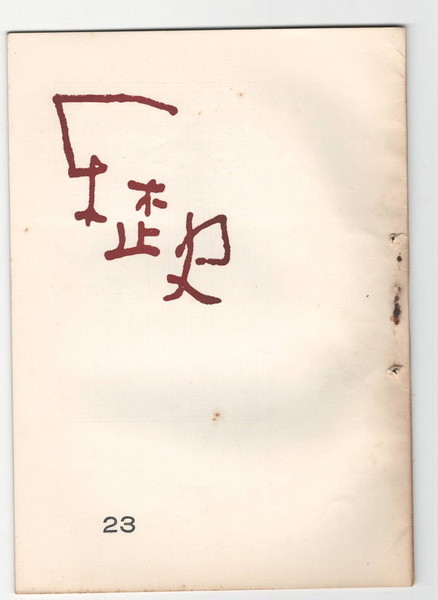 歴史
23